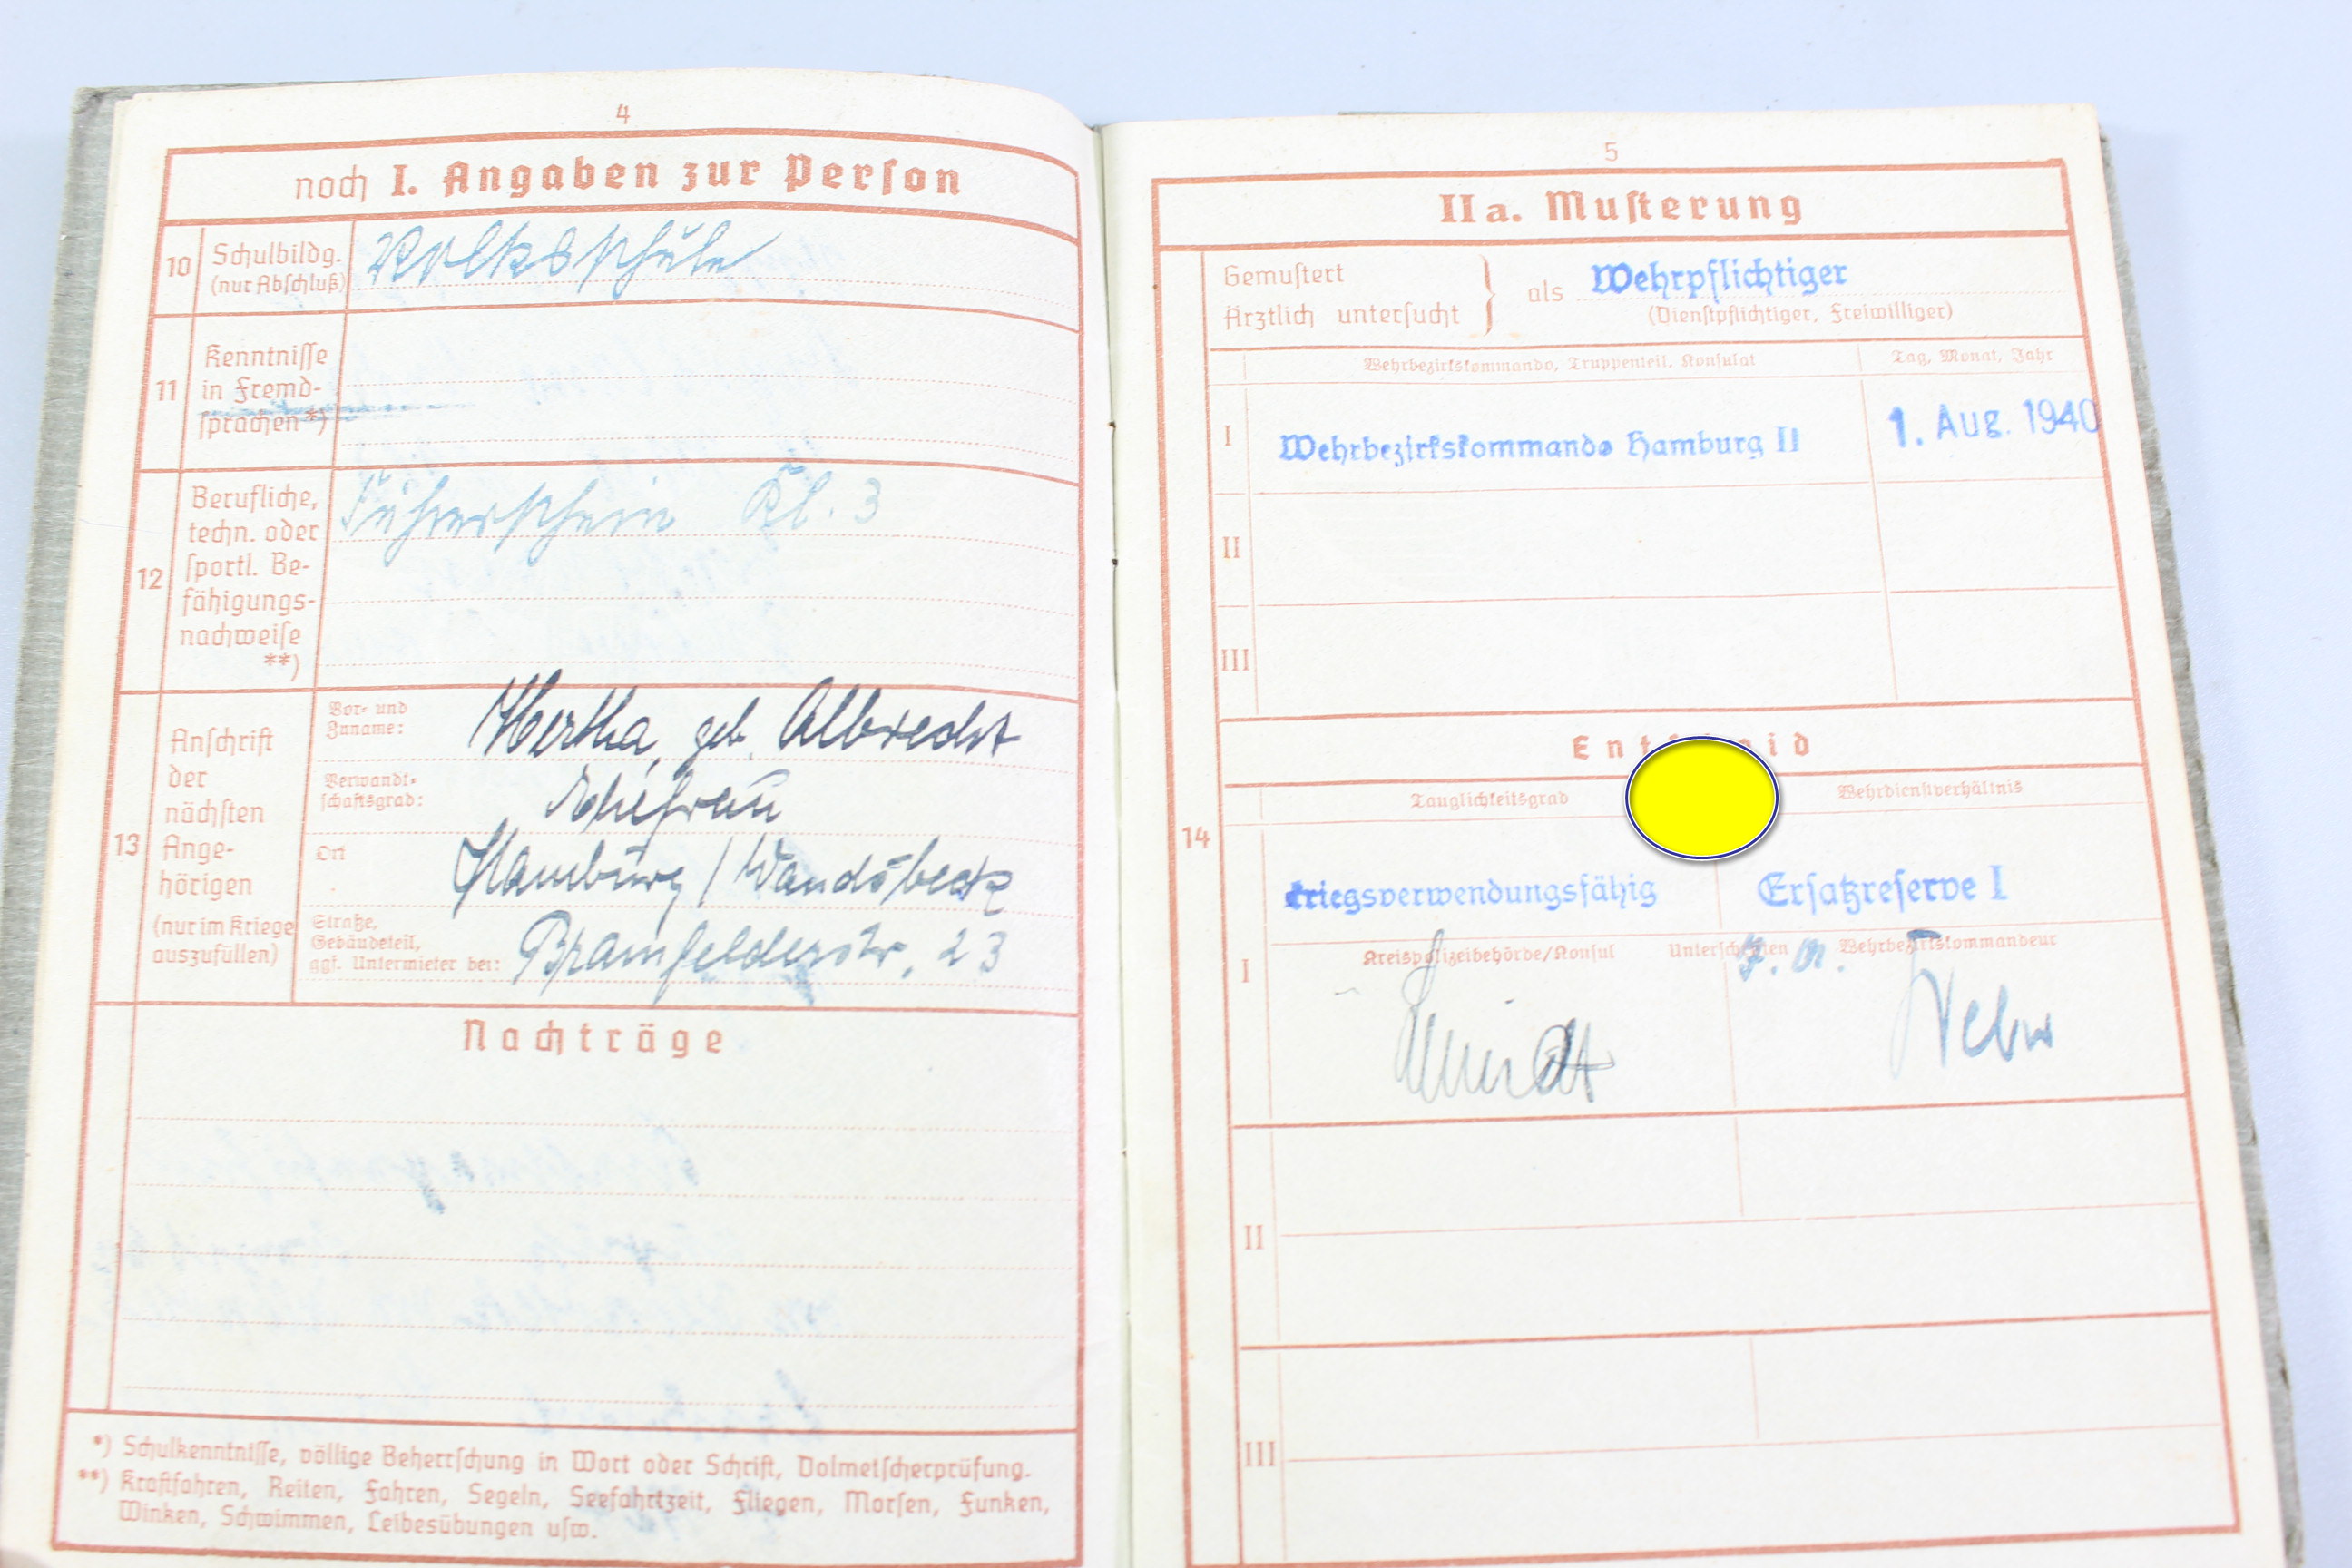 4
noch I. Angaben zur Person
10 Schulbildg. (nur Abschluß) Volksschule
11 Kenntnisse in Fremd-
sprachen *)
12 Berufliche,
techn. oder
sportl. Be-
fähigungs-
nachweise
**)
Führerschein Kl. 3
13 Anschrift
der
nächsten
Ange-
hörigen
(nur im Kriege
auszufüllen)
Vor- und
Zuname: Hertha, geb. Albrecht
Verwandt-
schaftsgrad: Ehefrau
Ort Hamburg / Wandsbeck
Straße,
Gebäudeteil,
ggf. Untermieter bei: Bramfelderstr. 23
Nachträge
*) Schulkenntnisse, völlige Beherrschung in Wort oder Schrift, Dolmetscherprüfung.
**) Kraftfahren, Reiten, Fahren, Segeln, Seefahrtzeit, Fliegen, Morsen, Funken,
Winken, Schwimmen, Leibesübungen usw.
5
IIa. Musterung
Gemustert
Ärztlich untersucht } als Wehrpflichtiger
(Dienstpflichtiger, Freiwilliger)
Wehrbezirkskommando, Truppenteil, Konsulat Tag, Monat, Jahr
I Wehrbezirkskommando Hamburg II 1. Aug. 1940
II
III
14
Tauglichkeitsgrad Wehrdienstverhältnis
kriegsverwendungsfähig Ersatzreserve I
I Kreispolizeibehörde/Konsul Unterschriften Wehrbezirkskommandeur
II
III